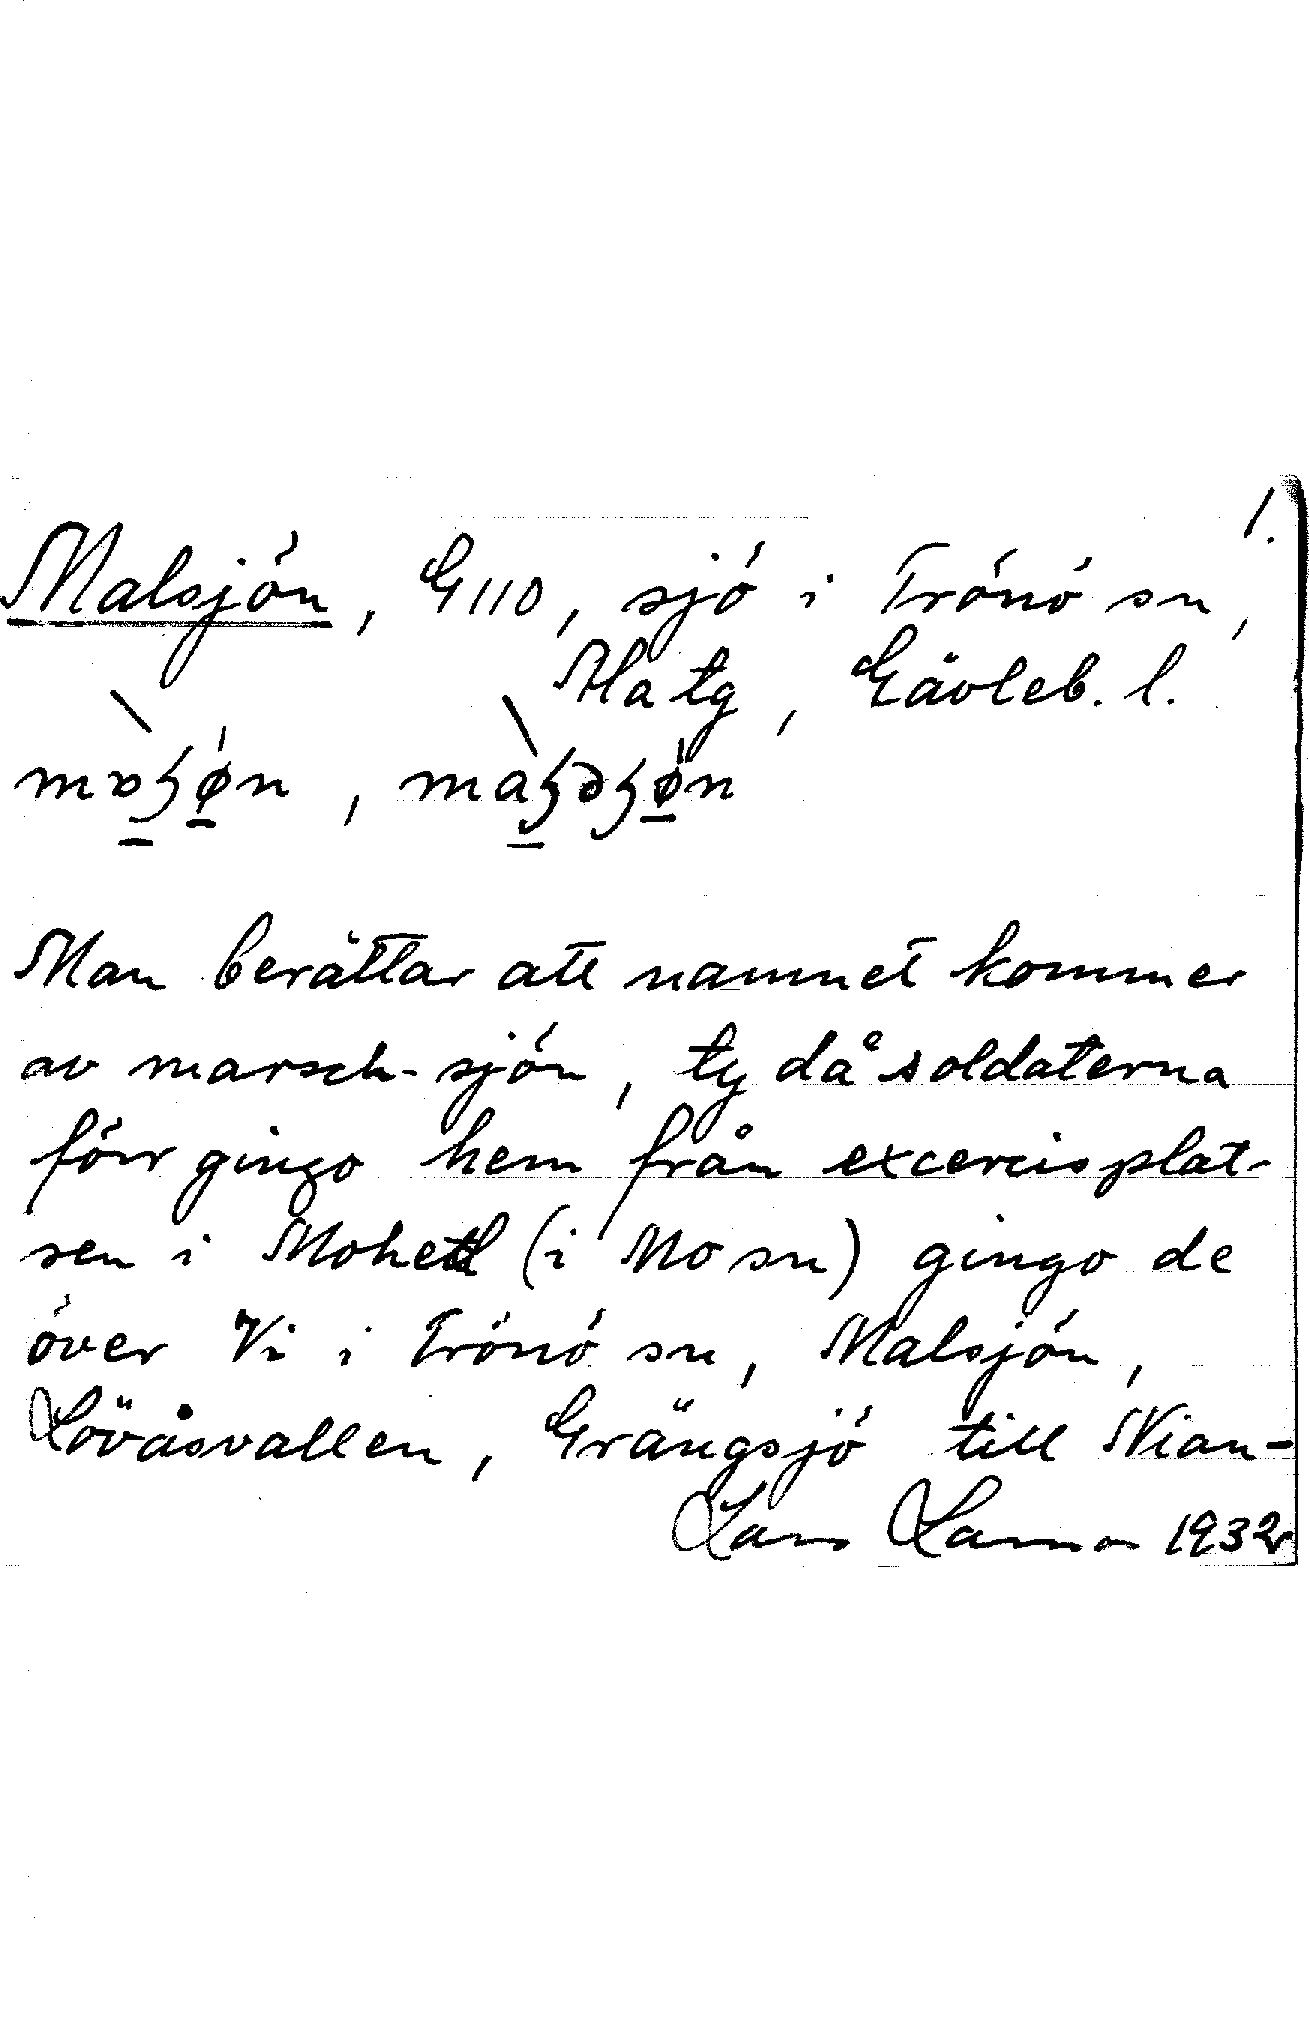 1.
Malsjön, G110, sjö i Trönö sn,
Ha tg, Gävleb. l.
Man berättar att namnet kommer
av marsch-sjön, ty då soldaterna
förr gingo hem från excercisplat-
sen i Mohed (i Mo sn) gingo de
över Vi i Trönö sn, Malsjön,
Lövåsvallen, Grängsjö till Nian-
Lars 1932